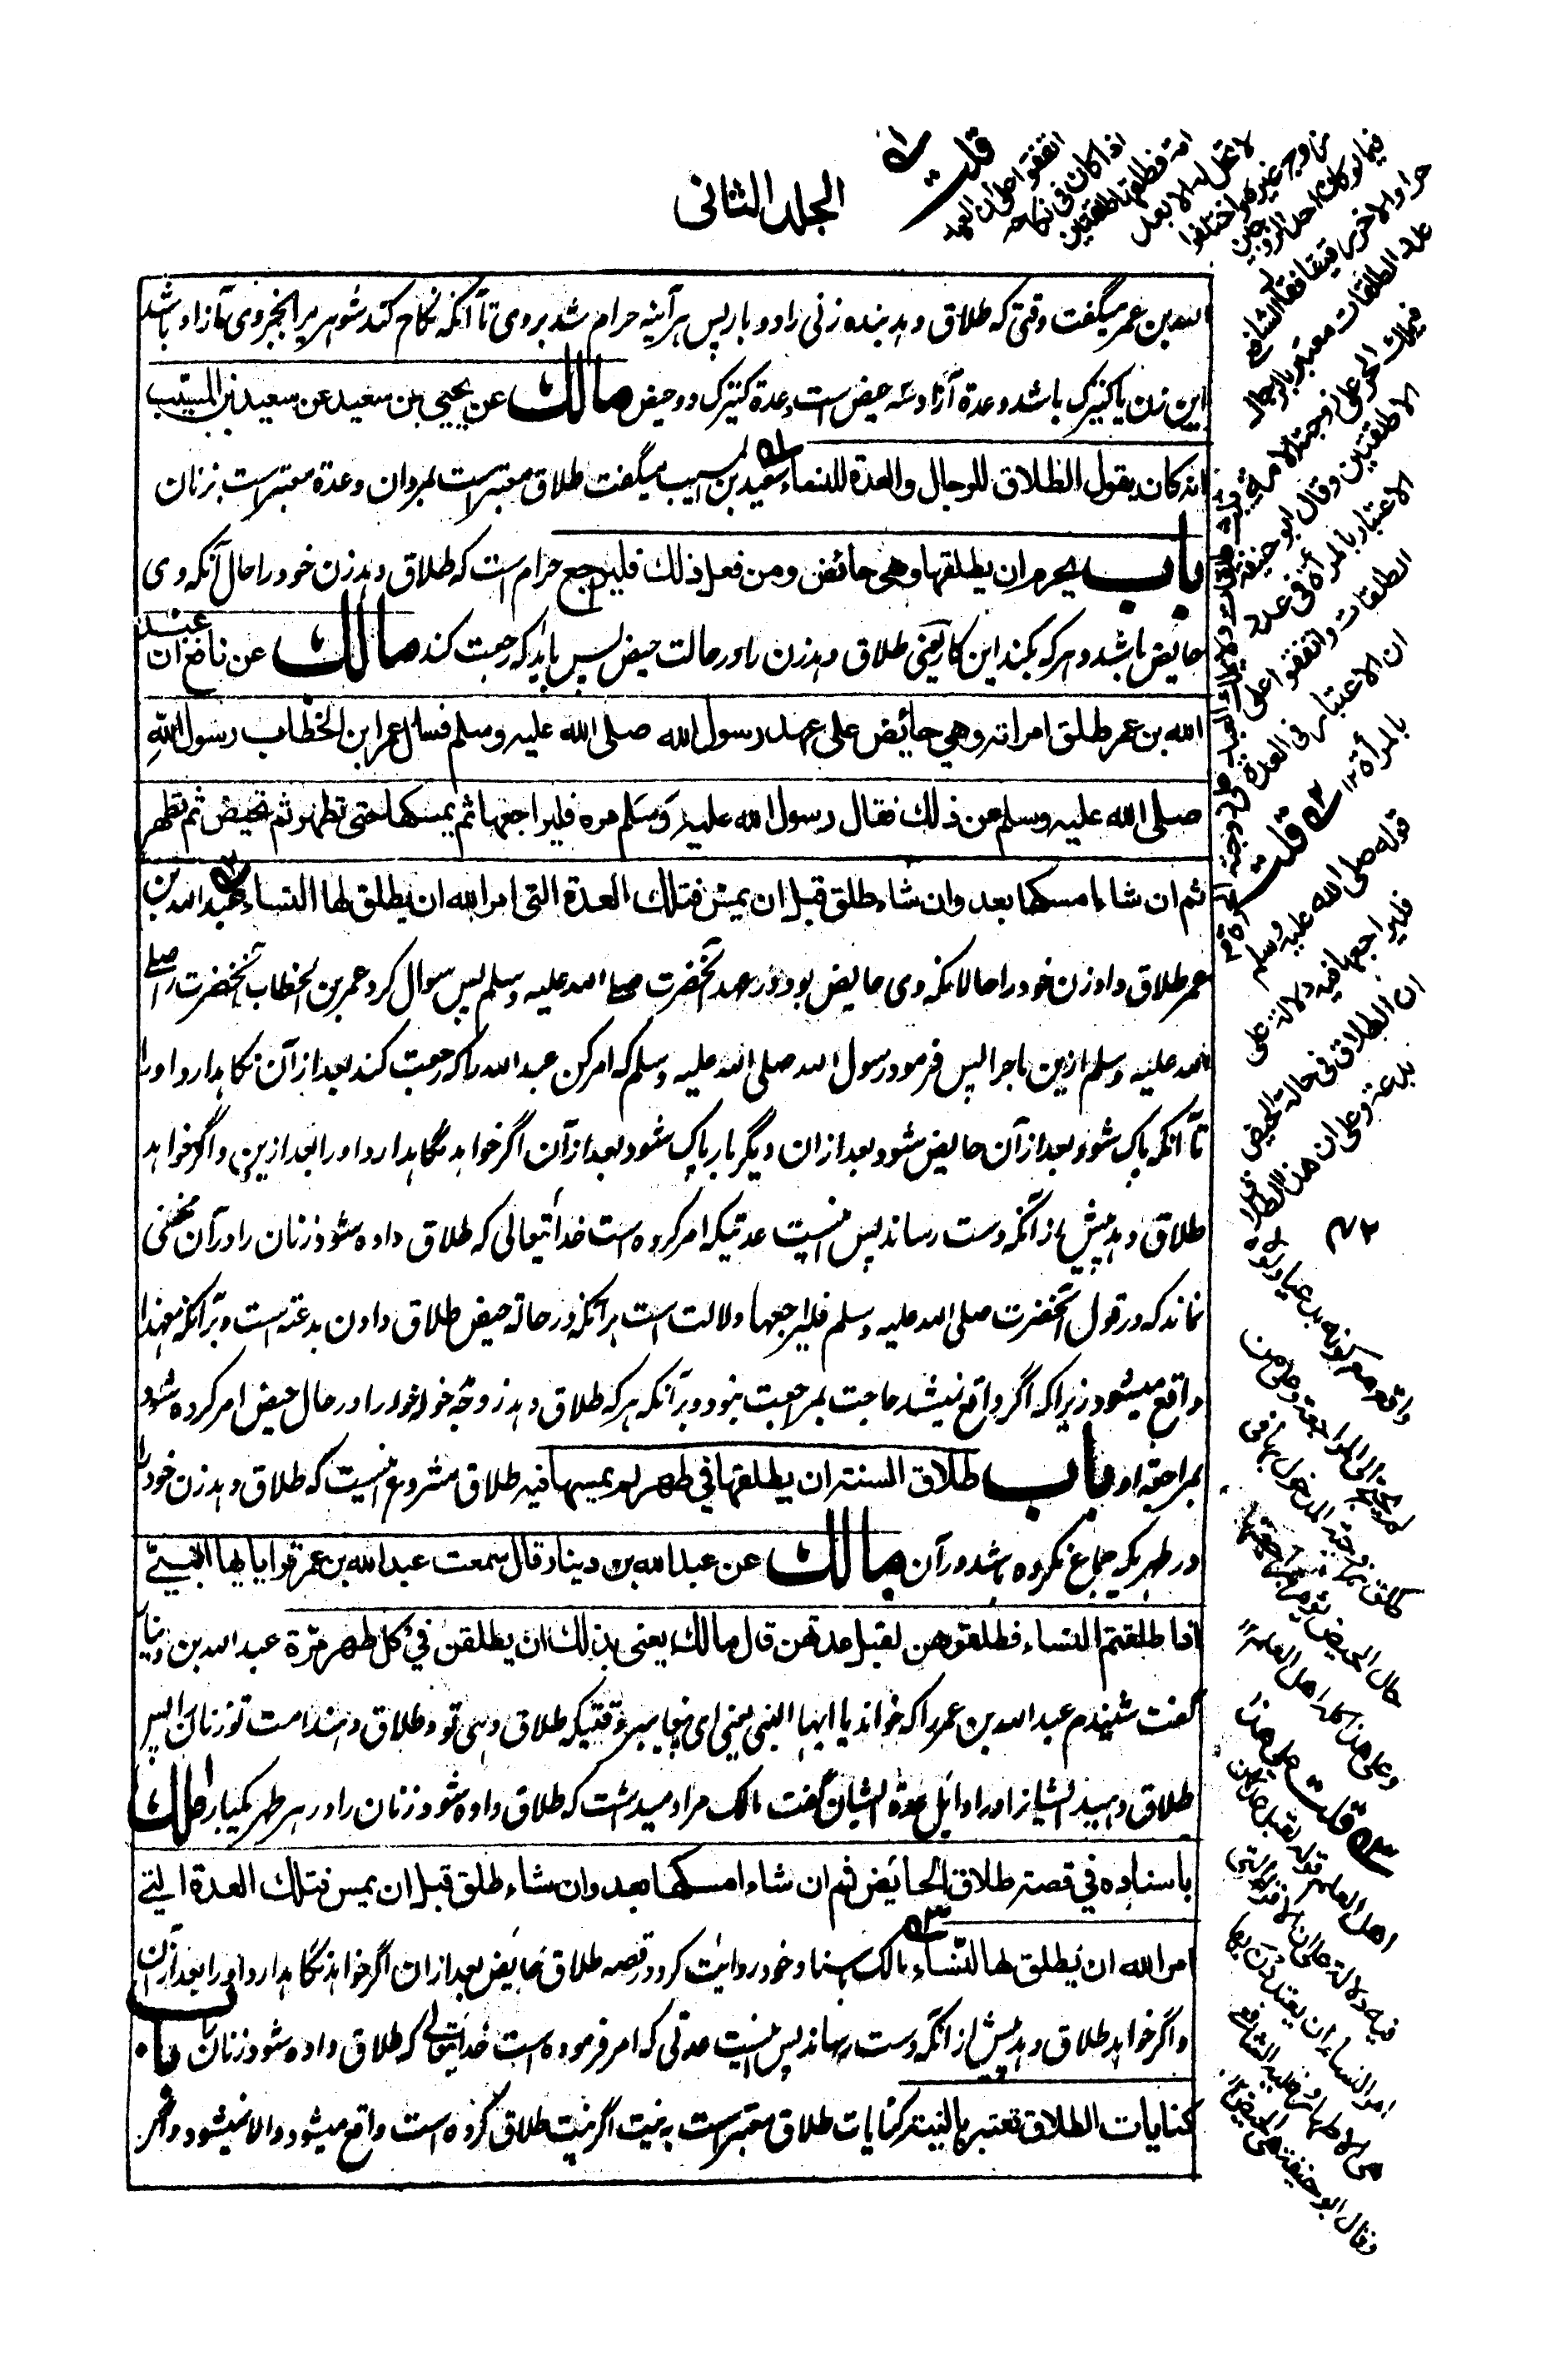 الجلد الثانى
الله بن عمر میگفت وقتی که طلاق دهد بنده زنی را دو بار پس هر آئینه حرام شد بر وی تا آنکه نکاح کند شوهر بجز وی آزاد باشد
این زن یا کنیزک باشد و عدۀ آزاد سه حیض است و عدۀ کنیزک دو حیض مالك عن يحيى بن سعيد عن سعيد بن المسيب
انه كان يقول الطلاق للرجال والعدة للنساء سعید بن المسیب میگفت طلاق معتبر است بمردان و عدۀ معتبر است بزنان
باب يحرم ان يطلقها وهى حائض ومن فعل ذلك فليراجع حرام است که طلاق دهد زن خود را حال آنکه وی
حایض باشد و هر که بکند این کار یعنی طلاق دهد زن را در حالت حیض پس باید که رجعت کند مالك عن نافع ان عبد
الله بن عمر طلق امراته وهي حائض على عهد رسول الله صلى الله عليه وسلم فسال عمر ابن الخطاب رسول الله
صلى الله عليه وسلم عن ذلك فقال رسول الله عليه وسلم مره فليراجعها ثم يمسكها حتى تطهر ثم تحيض ثم تطهر
ثم ان شاء امسكها بعد وان شاء طلق قبل ان يمس فتلك العدة التى امر الله ان يطلق لها النساء عبد الله بن
عمر طلاق داد زن خود را حالانکه وی حایض بود در عهد آنحضرت صلے الله علیه وسلم پس سوال کرد عمر بن الخطاب آنحضرت را صلے
الله علیه وسلم ازین ماجرا پس فرمود رسول الله صلی الله علیه وسلم که امر کن عبد الله را که رجعت کند بعد از آن نگاهدارد او را
تا آنکه پاک شود بعد از آن حایض شود بعد ازان دیگر بار پاک شود بعد از آن اگر خواهد نگاهدارد او را بعد ازین و اگر خواهد
طلاق دهد پیش از آنکه دست رساند پس اینست عدتیکه امر کرده است خدایتعالی که طلاق داده شود زنان را در آن مخفی
نماند که در قول آنحضرت صلی الله علیه وسلم فلیراجعها دلالت است بر آنکه در حالۀ حیض طلاق دادن بدعته است و بر آنکه معهذا
واقع میشود زیرا که اگر واقع نمیشد حاجت بمراجعت نبود و بر آنکه هر که طلاق دهد زوجۀ مدخوله خود را در حال حیض امر کرده شود
بمراجعۀ او باب طلاق السنة ان يطلقها في طهر لم يمسها فيه طلاق مشروع اینست که طلاق دهد زن خود را
در طهریکه جماع نکرده باشد در آن مالك عن عبد الله بن دينار قال سمعت عبد الله بن عمر قرا يايها النبي
اذا طلقتم النساء فطلقوهن لقبل عدتهن قال مالك يعنى بذلك ان يطلقن في كل طهر مرة عبد الله بن دینار
گفت شنیدم عبد الله بن عمر را که خواند یا ایها النبی یعنی ای پیغامبر وقتیکه طلاق دهی تو و طلاق دهند امت تو زنان را پس
طلاق دهید ایشان را در اوایل عدۀ ایشان گفت مالک مراد میداشت که طلاق داده شود زنان را در هر طهر یکبار مالك
باسناده في قصة طلاق الحائض ثم ان شاء امسكها بعد وان شاء طلق قبل ان يمس فتلك العدة التي
امر الله ان يطلق لها النساء مالک باسناد خود روایت کرد در قصه طلاق حایض بعد ازان اگر خواهد نگاهدارد او را بعد از آن
و اگر خواهد طلاق دهد پیش از آنکه دست رساند پس اینست عدتی که امر فرموده است خدایتعالے که طلاق داده شود زنان را بآن باب
كنايات الطلاق تعتبر بالنية کنایات طلاق معتبر است به نیت اگر نیت طلاق کرده است واقع میشود والا نمیشود و اگر
قلت
اتفقوا على ان العبد
اذا كان فى نكاحه
امة فطلقها طلقتين
لا تحل له الا بعد
زوج غيره واختلفوا
فيما لو كان احد الزوجين
حرا والاخر رقيقا فقال الشافعي
عدد الطلقات معتبر بالرجال
فيملك الحر على زوجته الامة
الا طلقتين وقال ابو حنيفة
الاعتبار بالمرأة في عدد
الطلقات واتفقوا على
ان الاعتبار فى العدة
بالمرأة ۱۲
قلت
قوله صلى الله عليه وسلم
فليراجعها فيه دلالة على
ان الطلاق فى حالة الحيض
بدعة وعلى ان هذا الطلاق
واقع مع كونه بدعيا
حال الحيض
وعلى هذا اكثر اهل العلم
قلت
اهل العلم قوله لقبل عدتهن
فيه دلالة على ان
امر النساء ان يعتددن بها
هى الاطهار وعليه الشافعي
وقال ابو حنيفة هى الحيض